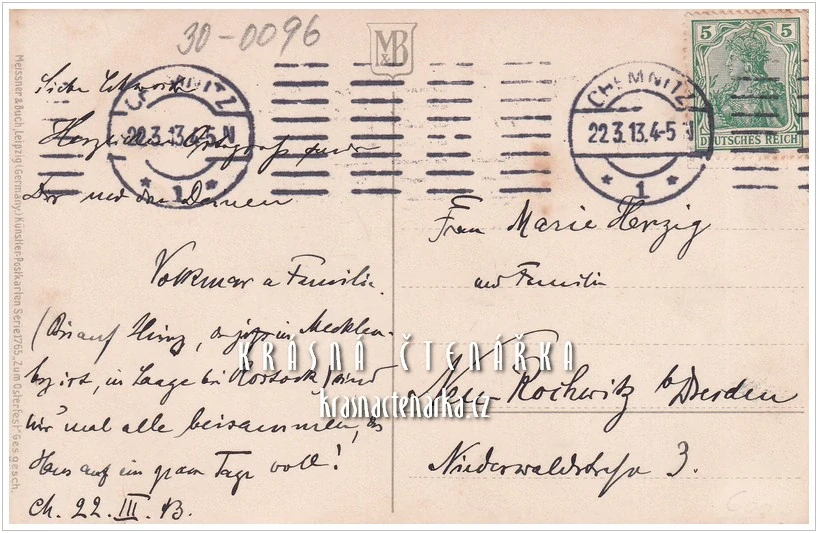 30-0096
M&B
5 5
DEUTSCHES REICH
CHEMNITZ
22.3.13.4-5 N
* 1 *
CHEMNITZ
22.3.13.4-5 N
* 1 *
Meissner & Buch, Leipzig (Germany) Künstler-Postkarten Serie 1765 "Zum Osterfest" Ges. gesch.
Liebe
Herzlichen
Dir und den Deinen
Volkmar u Familie.
(Bis auf Heinz, der jetzt in Mecklen-
bg ist, in Laage bei Rostock) sind
wir mal alle beisammen, das
Haus auf ein paar Tage voll!
Ch. 22. III. 13.
Frau Marie Herzig
und Familie
Neu-Rochwitz b/Dresden
Niederwaldstraße 3.
KRÁSNÁ ČTENÁŘKA
krasnactenarka.cz